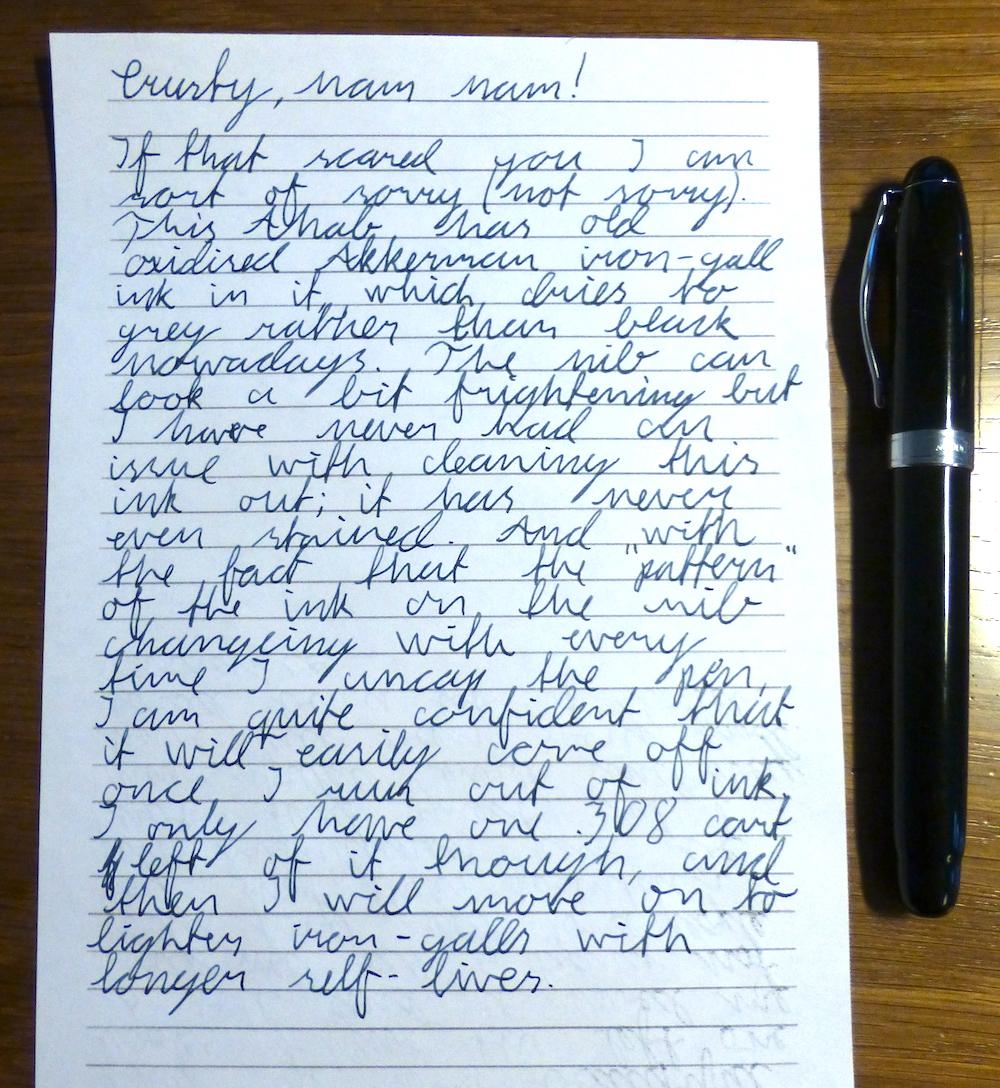 Crusty, nam nam!
If that scared you I am
sort of sorry (not sorry).
This Ahab has old
oxidised Akkerman iron-gall
ink in it, which dries to
grey rather than black
nowadays. The nib can
look a bit frightening but
I have never had an
issue with cleaning this
ink out; it has never
even stained. And with
the fact that the "pattern"
of the ink on the nib
changeing with every
time I uncap the pen,
I am quite confident that
it will easily come off
once I run out of ink.
I only have one .308 cart
left of it though, and
then I will move on to
lighter iron-galls with
longer self-lives.